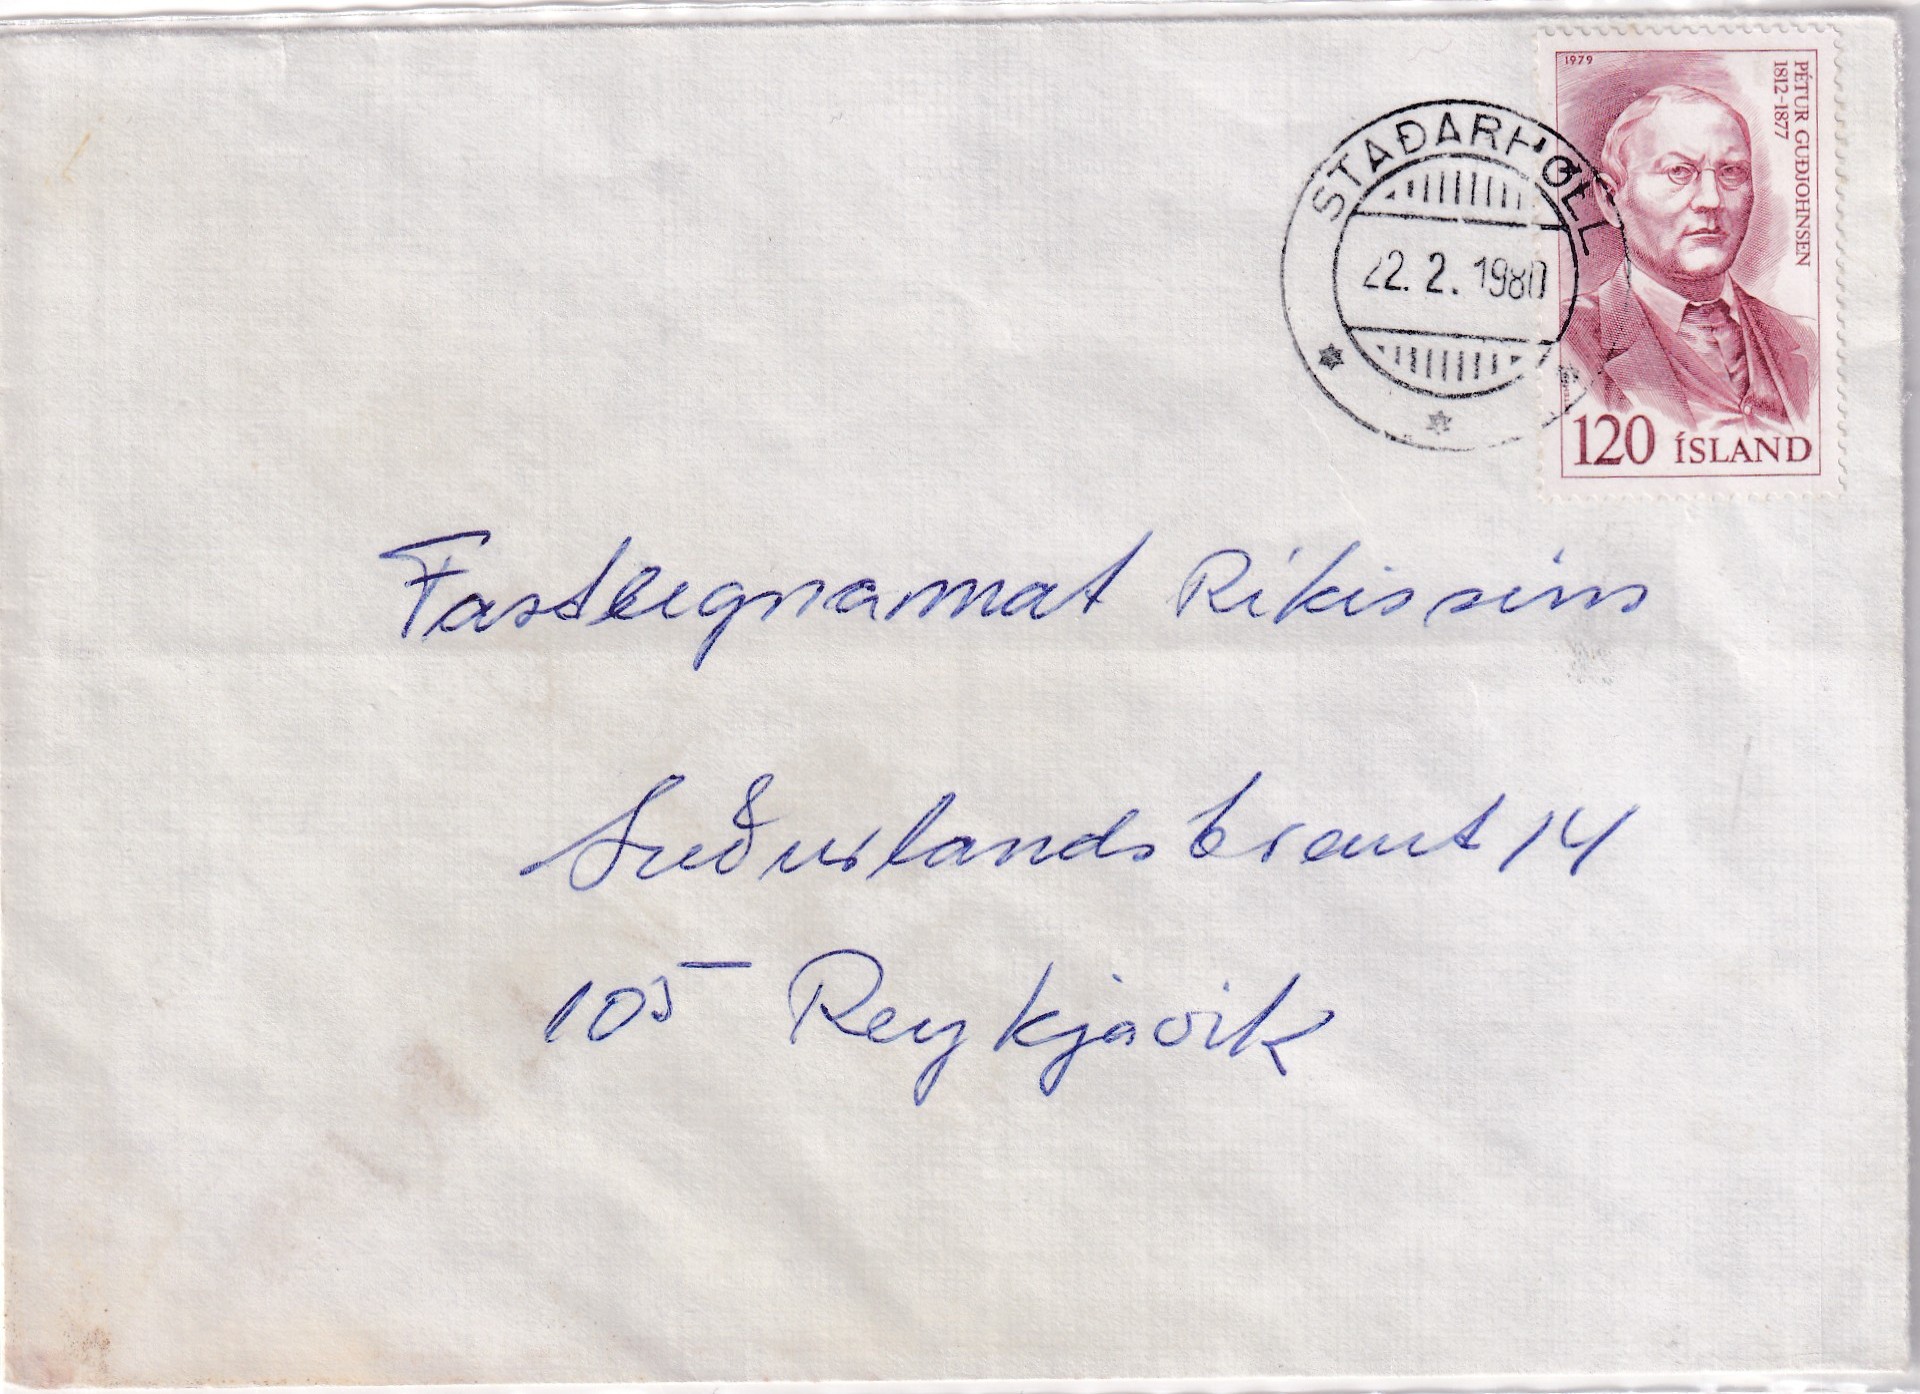 1979
PÉTUR GUÐJOHNSEN
1812-1877
STAÐARHÓLL
22. 2. 1980
120 ÍSLAND
Fasteignamat Ríkissins
Suðurlandsbraut 14
105 Reykjavik